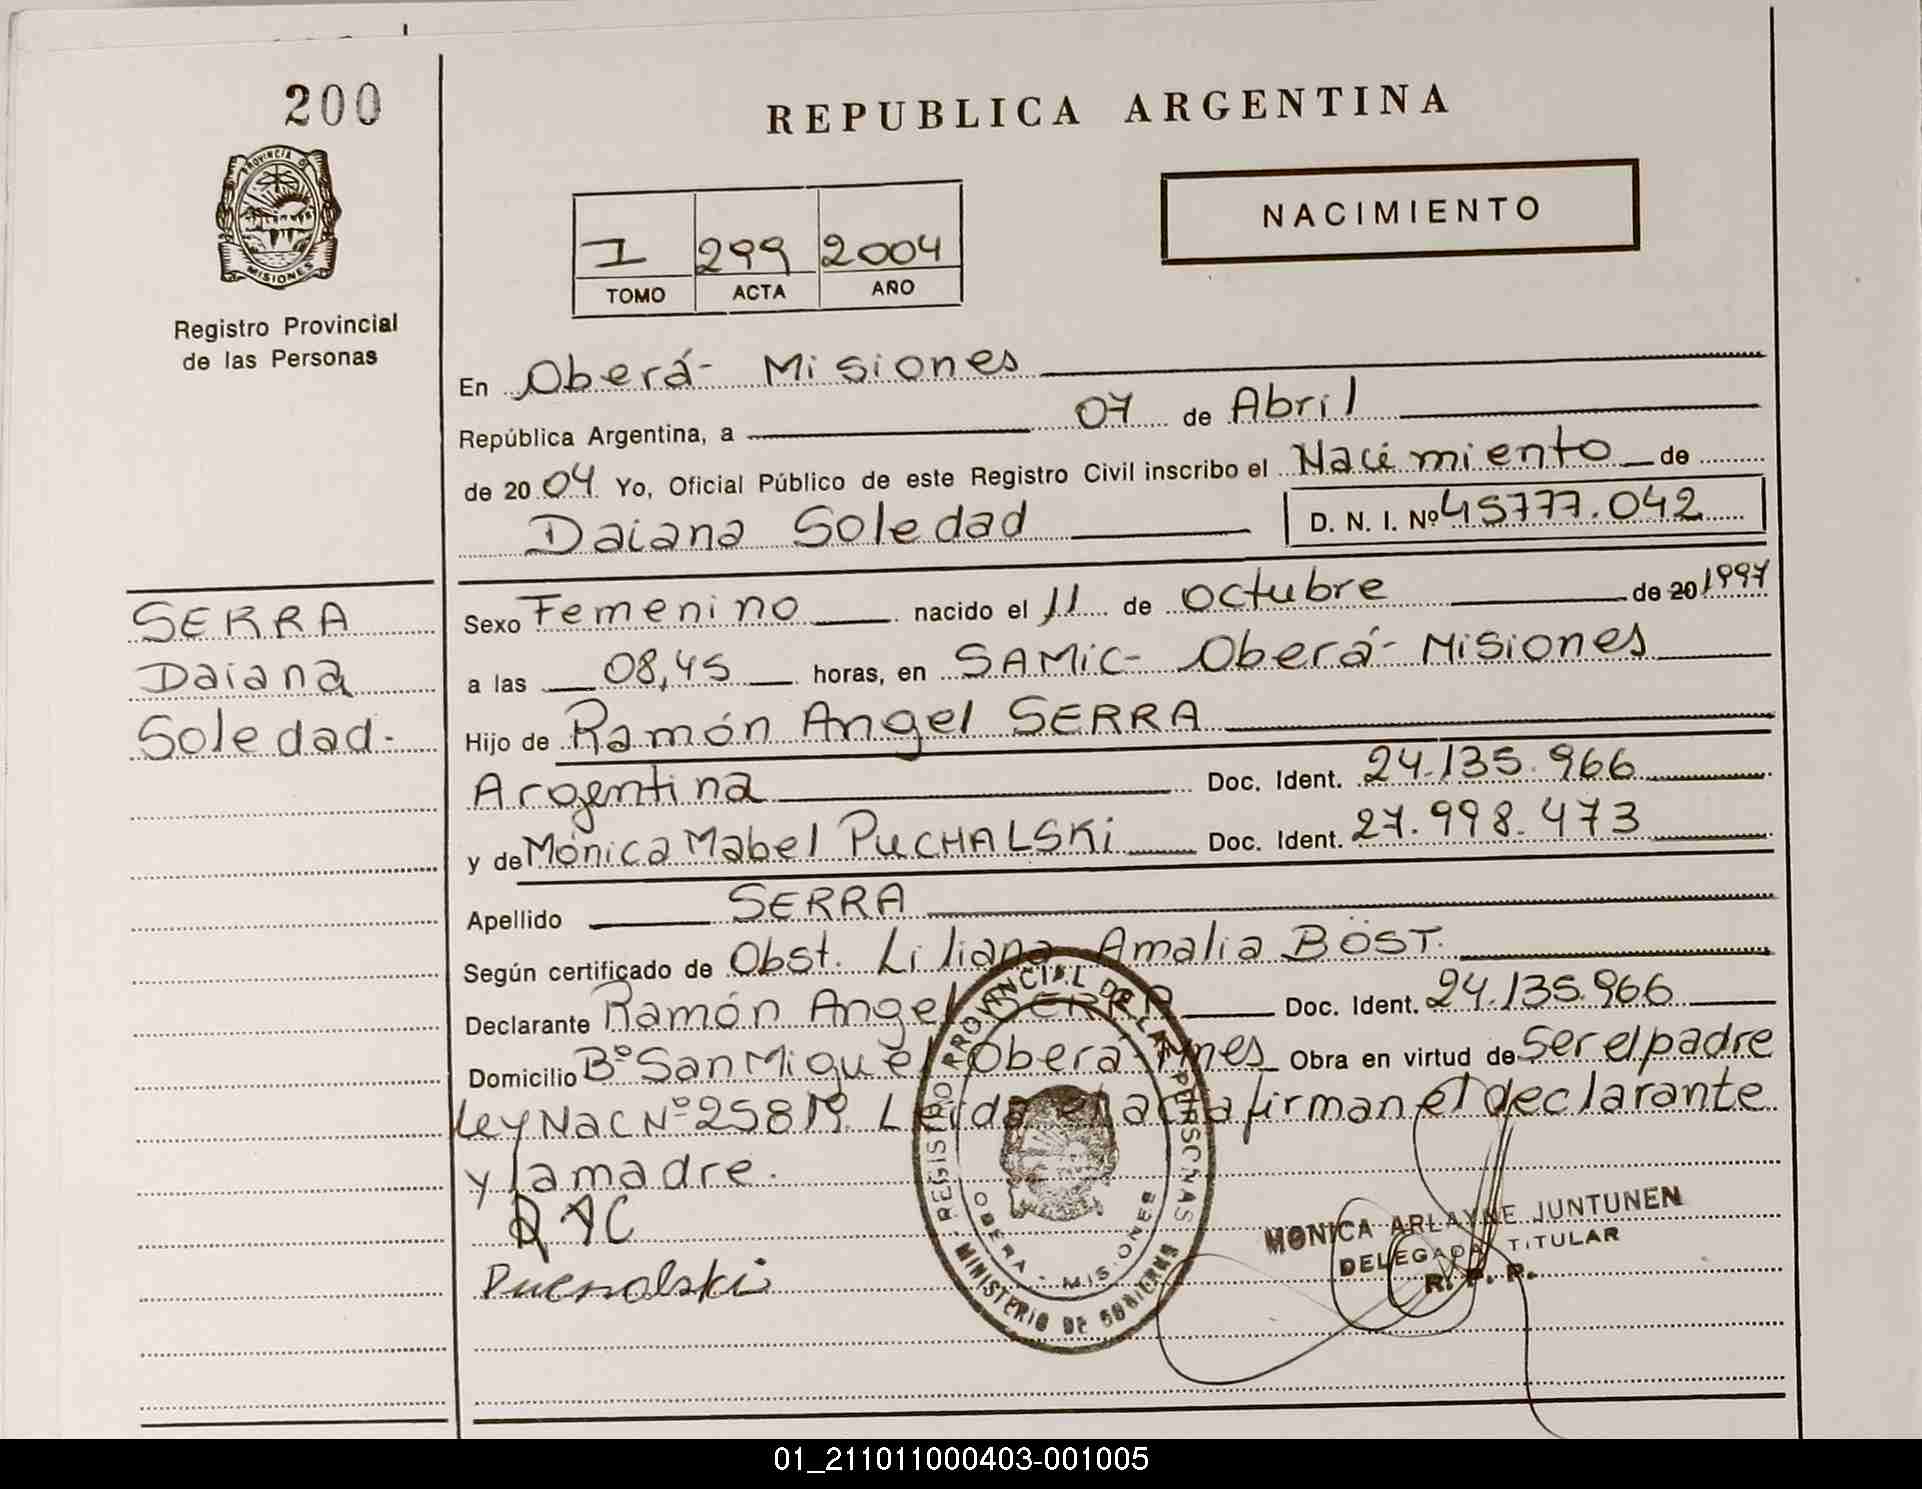 200
PROVINCIA D
MISIONES
Registro Provincial
de las Personas
REPUBLICA ARGENTINA
NACIMIENTO
I 299 2004
TOMO ACTA AÑO
En Oberá- Misiones
República Argentina, a 07 de Abril
de 2004 Yo, Oficial Público de este Registro Civil inscribo el Nacimiento de
Daiana Soledad D. N. I. Nº 45777.042
SERRA
Daiana
Soledad-
Sexo Femenino nacido el 11 de octubre de 20 1997
a las 08,45 horas, en SAMIC- Oberá- Misiones
Hijo de Ramón Angel SERRA
Argentina Doc. Ident. 24.135.966
y de Mónica Mabel PUCHALSKi Doc. Ident. 27.998.473
Apellido SERRA
Según certificado de Obst. Liliana Amalia BÖST.
Declarante Ramón Angel SERRA Doc. Ident. 24.135.966
Domicilio Bº San Miguel Oberá- Mnes Obra en virtud de Ser el padre
Ley Nac Nº 25819. Leída el acta firman el declarante
y la madre.
REGISTRO PROVINCIAL DE LAS PERSONAS
OBERA - MISIONES
MINISTERIO DE GOBIERNO
MONICA ARLAYNE JUNTUNEN
DELEGADA TITULAR
R. P. P.
01_211011000403-001005